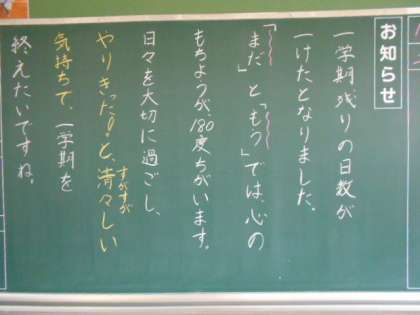 お知らせ
一学期残りの日数が
一けたとなりました。
「まだ」と「もう」では、心の
もちようが、180度ちがいます。
日々を大切に過ごし、
やりきった！と、清々しい
すがすが
気持ちで、一学期を
終えたいですね。